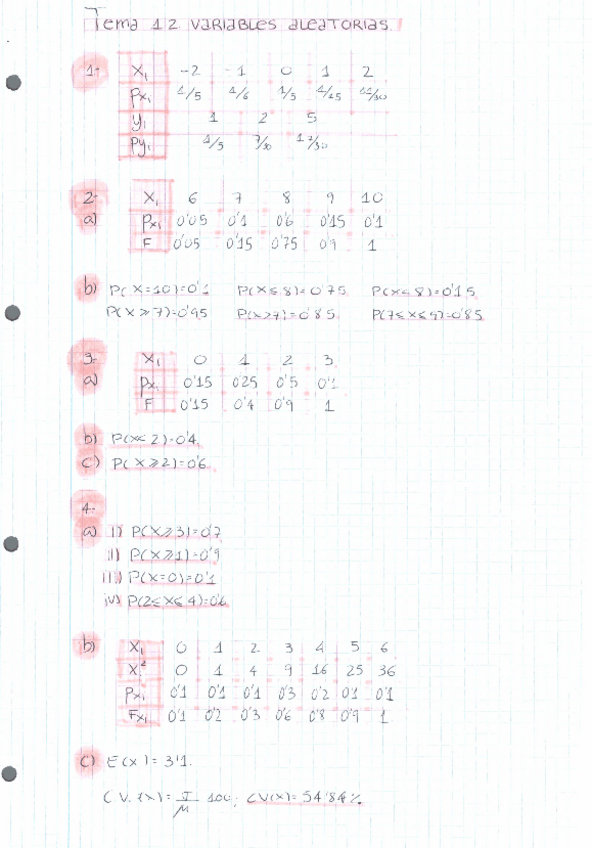 Tema 12 VARIABLES ALEATORIAS.
1- Xi -2 -1 0 1 2
Pxi 1/5 1/6 1/5 1/15 11/30
yi 1 2 5
Pyi 1/5 7/30 17/30
2- Xi 6 7 8 9 10
a) Pxi 0'05 0'1 0'6 0'15 0'1
F 0'05 0'15 0'75 0'9 1
b) P(X=10)=0'1 P(X≤8)=0'75 P(X<8)=0'15
P(X≥7)=0'95 P(X>7)=0'85 P(7≤X≤9)=0'85
3- Xi 0 1 2 3
a) Pxi 0'15 0'25 0'5 0'1
F 0'15 0'4 0'9 1
b) P(X<2)=0'4
c) P(X≥2)=0'6
4-
a) i) P(X≥3)=0'7
ii) P(X≥1)=0'9
iii) P(X=0)=0'1
iv) P(2≤X≤4)=0'6
b) Xi 0 1 2 3 4 5 6
Xi² 0 1 4 9 16 25 36
Pxi 0'1 0'1 0'1 0'3 0'2 0'1 0'1
Fxi 0'1 0'2 0'3 0'6 0'8 0'9 1
c) E(x)= 3'1.
CV.(x)= σ/μ · 100; CV(x)= 54'84%